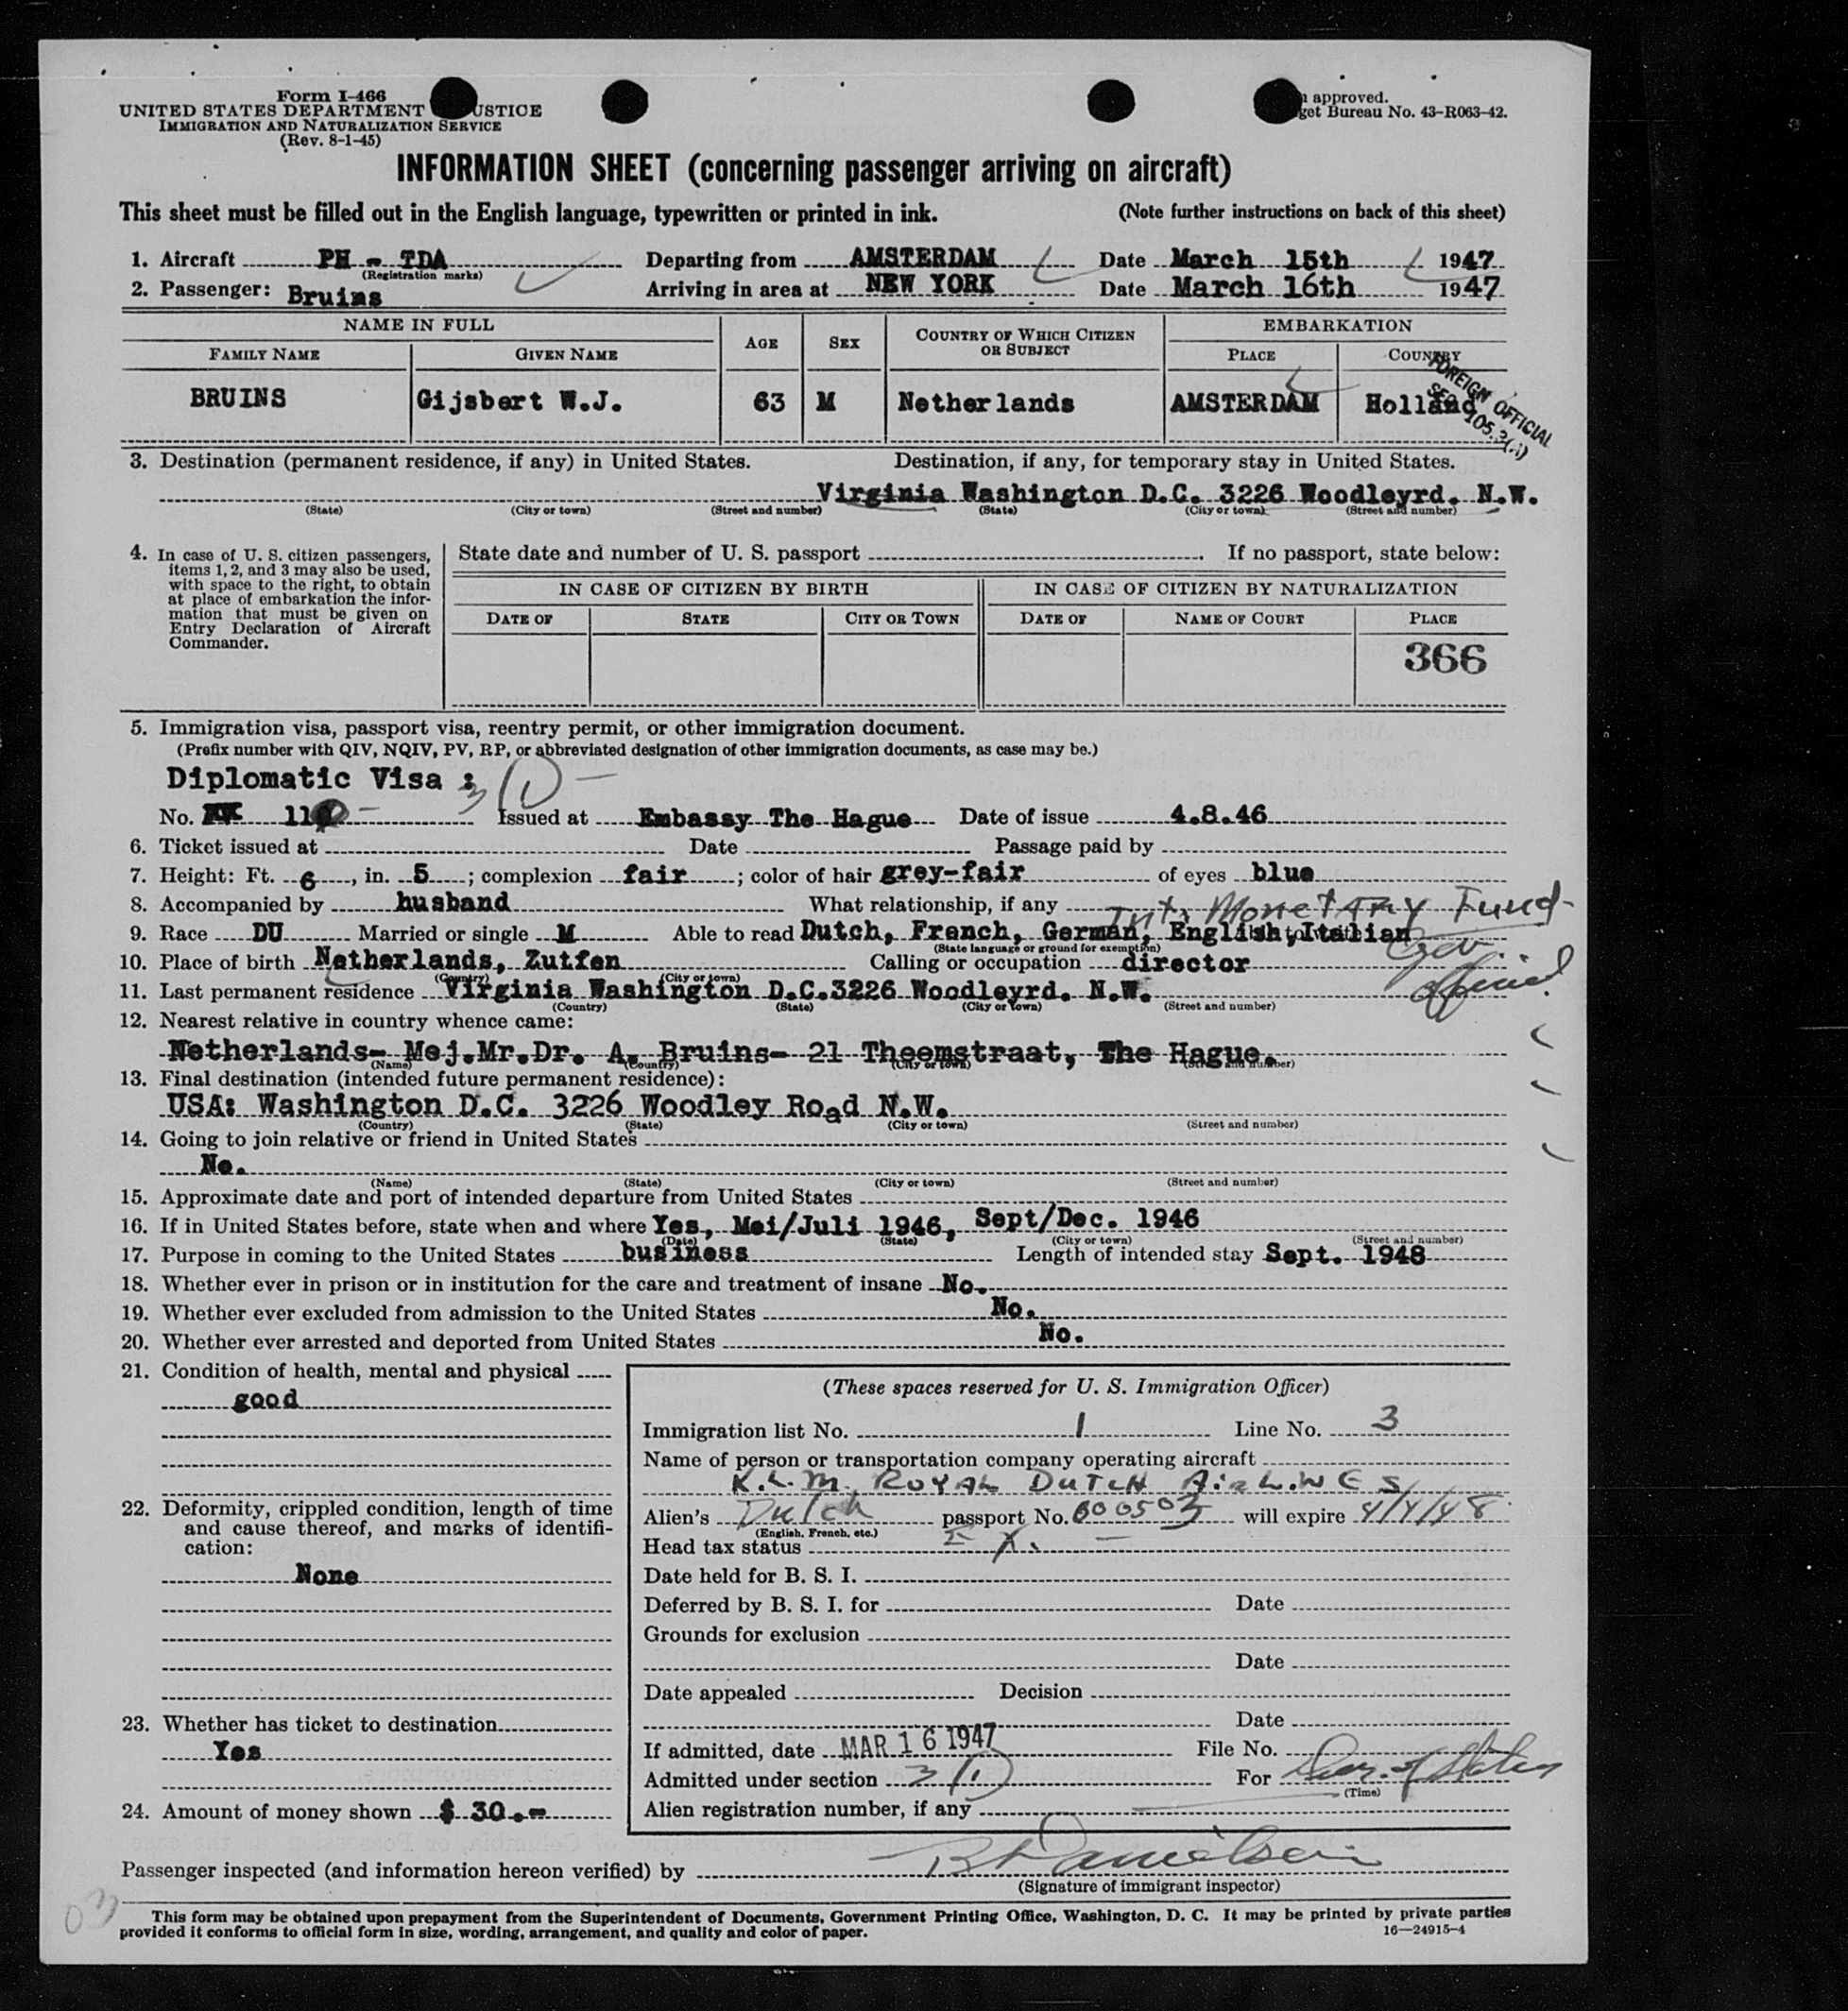 Form I-466
UNITED STATES DEPARTMENT USTICE
IMMIGRATION AND NATURALIZATION SERVICE
(Rev. 8-1-45)
approved.
get Bureau No. 43-R063-42.
INFORMATION SHEET (concerning passenger arriving on aircraft)
This sheet must be filled out in the English language, typewritten or printed in ink. (Note further instructions on back of this sheet)
1. Aircraft PH - TDA Departing from AMSTERDAM Date March 15th 1947
(Registration marks)
2. Passenger: Bruins Arriving in area at NEW YORK Date March 16th 1947
NAME IN FULL AGE SEX COUNTRY OF WHICH CITIZEN OR SUBJECT EMBARKATION
FAMILY NAME GIVEN NAME PLACE COUNTRY
BRUINS Gijsbert W.J. 63 M Netherlands AMSTERDAM Holland
FOREIGN OFFICIAL
SEC. 105.3
3. Destination (permanent residence, if any) in United States. Destination, if any, for temporary stay in United States.
Virginia Washington D.C. 3226 Woodleyrd. N.W.
(State) (City or town) (Street and number) (State) (City or town) (Street and number)
4. In case of U. S. citizen passengers, items 1, 2, and 3 may also be used, with space to the right, to obtain at place of embarkation the information that must be given on Entry Declaration of Aircraft Commander.
State date and number of U. S. passport If no passport, state below:
IN CASE OF CITIZEN BY BIRTH IN CASE OF CITIZEN BY NATURALIZATION
DATE OF STATE CITY OR TOWN DATE OF NAME OF COURT PLACE
366
5. Immigration visa, passport visa, reentry permit, or other immigration document.
(Prefix number with QIV, NQIV, PV, RP, or abbreviated designation of other immigration documents, as case may be.)
Diplomatic Visa : 3(1)
No. 11 Issued at Embassy The Hague Date of issue 4.8.46
6. Ticket issued at Date Passage paid by
7. Height: Ft. 6, in. 5; complexion fair; color of hair grey-fair of eyes blue
8. Accompanied by husband What relationship, if any
Int. Monetary Fund
9. Race DU Married or single M Able to read Dutch, French, German, English, Italian
(State language or ground for exemption)
Gov. Official
10. Place of birth Netherlands, Zutfen Calling or occupation director
(Country) (City or town)
11. Last permanent residence Virginia Washington D.C. 3226 Woodleyrd. N.W.
(Country) (State) (City or town) (Street and number)
12. Nearest relative in country whence came:
Netherlands- Mej.Mr.Dr. A. Bruins- 21 Theemstraat, The Hague.
(Name) (Country) (City or town) (Street and number)
13. Final destination (intended future permanent residence):
USA: Washington D.C. 3226 Woodley Road N.W.
(Country) (State) (City or town) (Street and number)
14. Going to join relative or friend in United States
No.
(Name) (State) (City or town) (Street and number)
15. Approximate date and port of intended departure from United States
16. If in United States before, state when and where Yes, Mei/Juli 1946, Sept/Dec. 1946
(Date) (State) (City or town) (Street and number)
17. Purpose in coming to the United States business Length of intended stay Sept. 1948
18. Whether ever in prison or in institution for the care and treatment of insane No.
19. Whether ever excluded from admission to the United States No.
20. Whether ever arrested and deported from United States No.
21. Condition of health, mental and physical
good
22. Deformity, crippled condition, length of time and cause thereof, and marks of identification:
None
23. Whether has ticket to destination
Yes
24. Amount of money shown $ 30.=
(These spaces reserved for U. S. Immigration Officer)
Immigration list No. 1 Line No. 3
Name of person or transportation company operating aircraft
K.L.M. ROYAL DUTCH AIRLINES
Alien's Dutch passport No. 600503 will expire 4/4/48
(English, French, etc.)
Head tax status EX.
Date held for B. S. I.
Deferred by B. S. I. for Date
Grounds for exclusion
Date
Date appealed Decision
Date
If admitted, date MAR 16 1947 File No.
Admitted under section 3(1) For Dur. of Status
(Time)
Alien registration number, if any
Passenger inspected (and information hereon verified) by Danielson
(Signature of immigrant inspector)
03
This form may be obtained upon prepayment from the Superintendent of Documents, Government Printing Office, Washington, D. C. It may be printed by private parties
provided it conforms to official form in size, wording, arrangement, and quality and color of paper. 16—24915-4